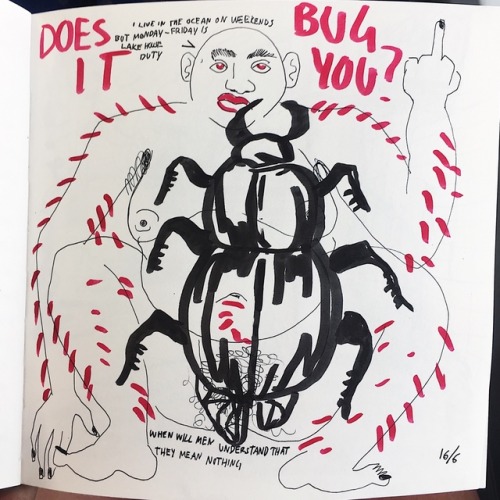 DOES
IT
BUG
YOU?
I LIVE IN THE OCEAN ON WEEKENDS
BUT MONDAY-FRIDAY IS
LAKE HOUSE
DUTY
WHEN WILL MEN UNDERSTAND THAT
THEY MEAN NOTHING
16/6